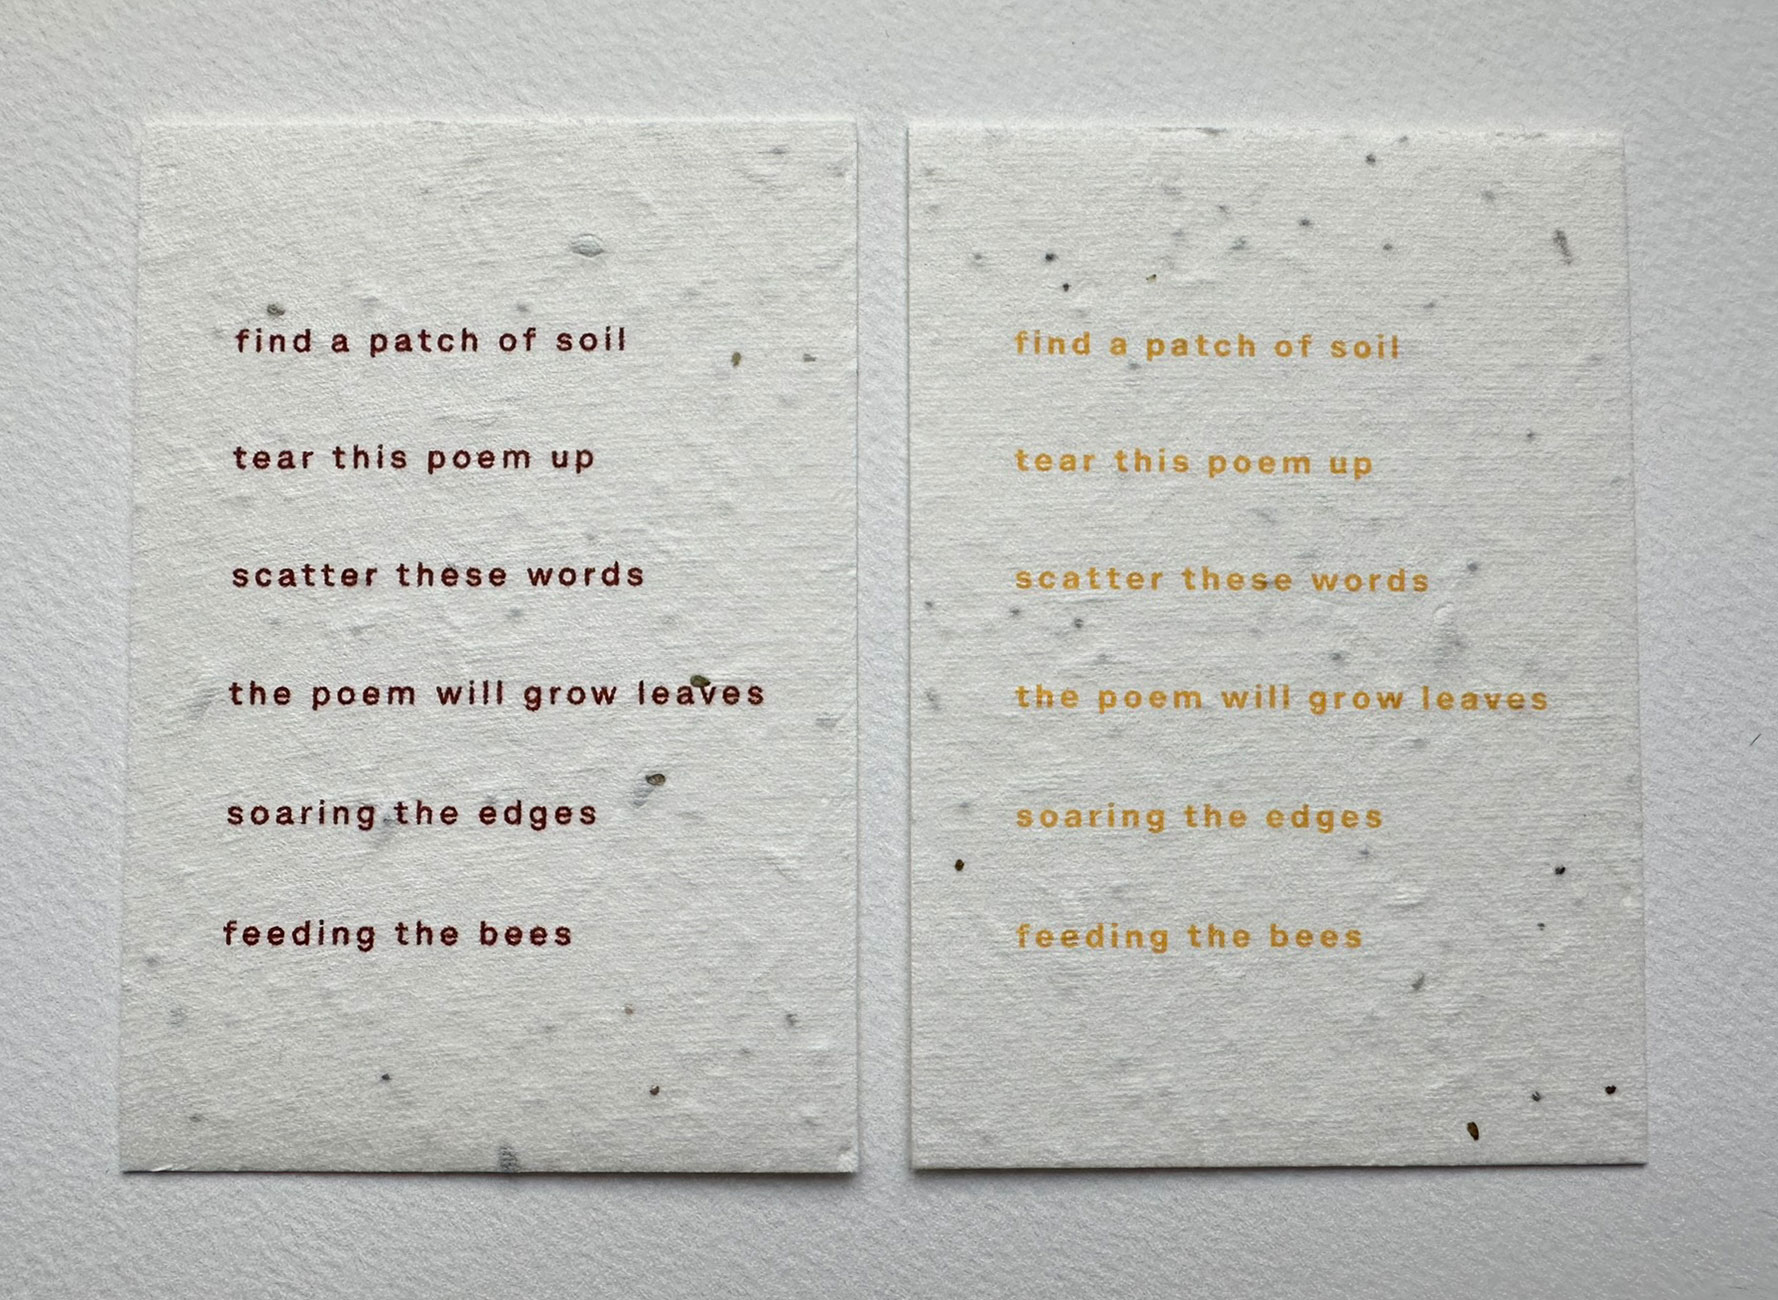 find a patch of soil
tear this poem up
scatter these words
the poem will grow leaves
soaring the edges
feeding the bees
find a patch of soil
tear this poem up
scatter these words
the poem will grow leaves
soaring the edges
feeding the bees